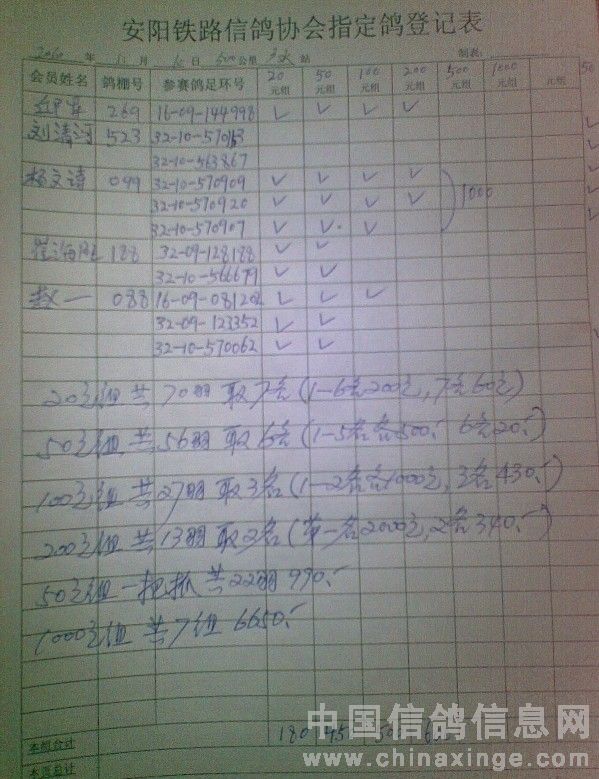 安阳铁路信鸽协会指定鸽登记表
年 11 月 日 500公里 站 制表:
会员姓名 鸽棚号 参赛鸽足环号 20元组 50元组 100元组 200元组 500元组 1000元组 元组 50
269 16-09-144998 ✓ ✓ ✓ ✓
刘清河 523 32-10-57063
32-10-563867
杨文诗 099 32-10-570909 ✓ ✓ ✓ ✓
32-10-570920 ✓ ✓ ✓ ✓ 1000
32-10-570907 ✓ ✓ ✓ ✓
188 32-09-128188 ✓ ✓
32-10-566679 ✓ ✓
赵一 088 16-09-081204 ✓ ✓ ✓
32-09-123352 ✓ ✓
32-10-570062 ✓ ✓
20元组 共70羽 取7名(1-6名200元,7名60元)
50元组 共56羽 取6名(1-5名各500.- 6名20.-)
100元组 共27羽 取3名(1-2名各1000元,3名430.-)
200元组 共13羽 取2名(第一名2000元,2名340.-)
50元组一把抓 共22羽 990.-
1000元组 共7组 6650.-
本组合计 180 145
本页合计
中国信鸽信息网
www.chinaxinge.com